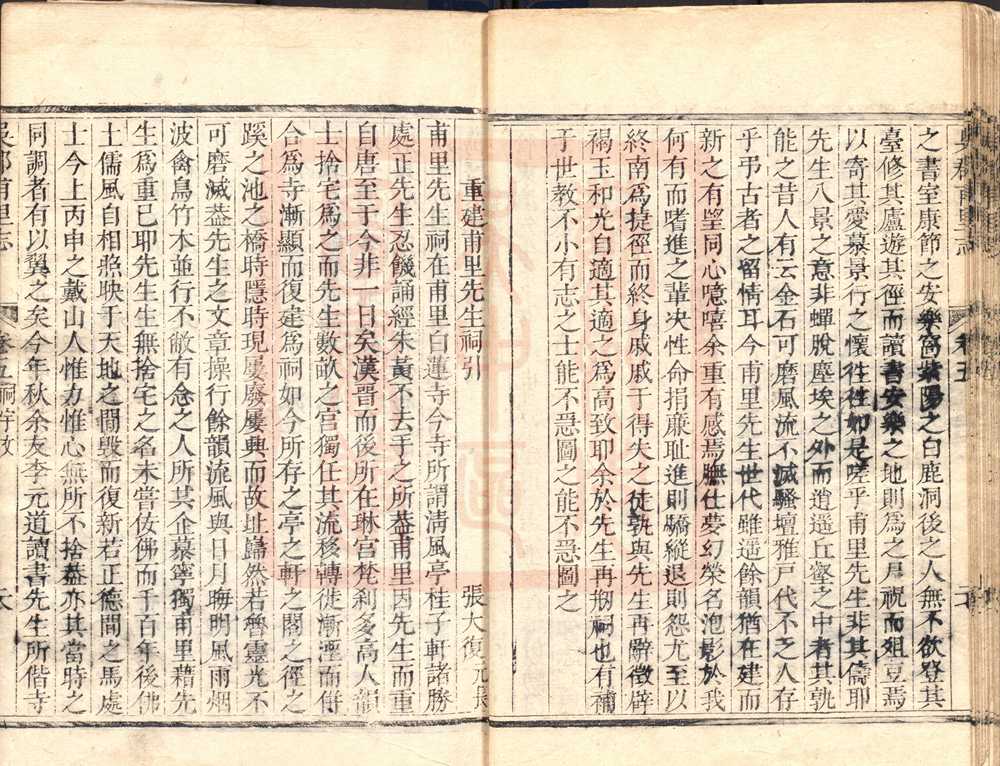 之書室康節之安樂窩紫陽之白鹿洞後之人無不欲登其
臺修其廬遊其徑而讀書安樂之地則為之尸祝而俎豆焉
以寄其愛慕景行之懷往往如是嗟乎甫里先生非其儔耶
先生八景之意非蟬脫塵埃之外而逍遥丘壑之中者其孰
能之昔人有云金石可磨風流不滅騷壇雅戸代不乏人存
乎弔古者之留情耳今甫里先生世代雖遥餘韻猶在建而
新之有望同心噫嘻余重有感焉膴仕夢幻榮名泡影於我
何有而嗜進之輩决性命捐廉耻進則驕縱退則怨尤至以
終南為捷徑而終身戚戚于得失之徒孰與先生再辭徵辟
褐玉和光自適其適之為高致耶余於先生再刱祠也有補
于世教不小有志之士能不亟圖之能不亟圖之
重建甫里先生祠引
張大復元長
甫里先生祠在甫里白蓮寺今寺所謂淸風亭桂子軒諸勝
處正先生忍饑誦經朱黃不去手之所葢甫里因先生而重
自唐至于今非一日矣漢晋而後所在琳宫梵刹多高人韻
士捨宅為之而先生數畝之宫獨任其流移轉徙漸湮而倂
合為寺漸顯而復建為祠如今所存之亭之軒之閣之徑之
蹊之池之橋時隱時現屢廢屢興而故址巋然若魯靈光不
可磨滅葢先生之文章操行餘韻流風與日月晦明風雨烟
波禽鳥竹木並行不敝有念之人所其企慕寧獨甫里藉先
生爲重已耶先生生無捨宅之名未嘗佞佛而千百年後佛
士儒風自相照映于天地之間毀而復新若正德間之馬處
士今上丙申之戴山人惟力惟心無所不捨葢亦其當時之
同調者有以翼之矣今年秋余友李元道讀書先生所偕寺
吳郡甫里志
卷五祠宇改